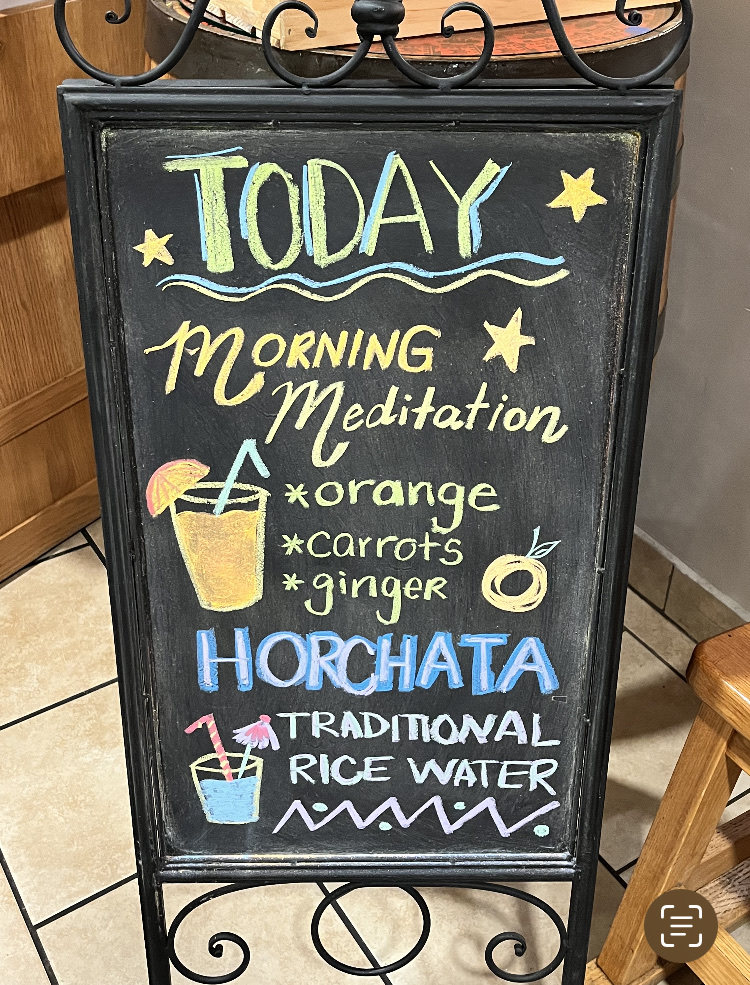 TODAY
MORNING
Meditation
*orange
*carrots
*ginger
HORCHATA
TRADITIONAL
RICE WATER